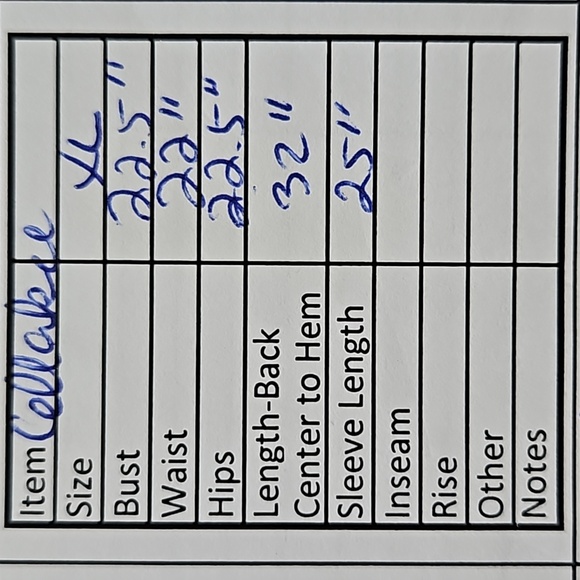 Item Cellabie
Size XL
Bust 22.5"
Waist 22"
Hips 22.5"
Length-Back
Center to Hem 32"
Sleeve Length 25"
Inseam
Rise
Other
Notes